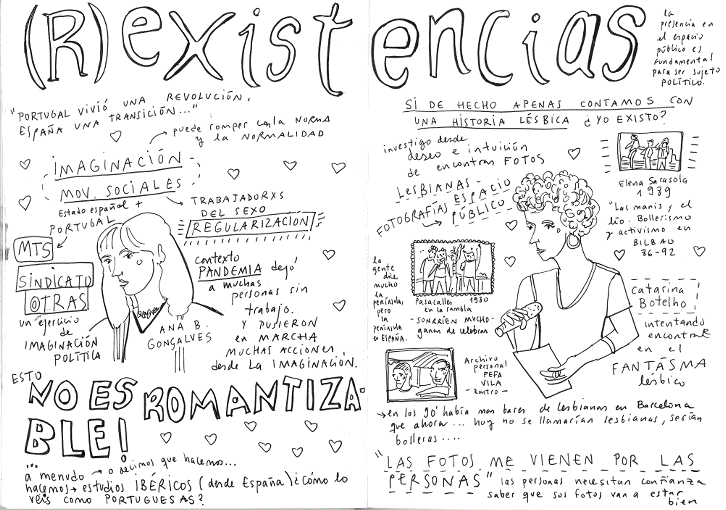 (R)existencias
"PORTUGAL VIVIÓ UNA REVOLUCIÓN,
ESPAÑA UNA TRANSICIÓN..."
puede romper con la NORMA
y la NORMALIDAD
IMAGINACIÓN
MOV. SOCIALES
Estado español +
PORTUGAL
TRABAJADORXS
DEL SEXO
REGULARIZACIÓN
MTS
SINDICATO
OTRAS
un ejercicio
de
IMAGINACIÓN
POLÍTICA
ANA B.
GONÇALVES
contexto
PANDEMIA dejó
a muchas
personas sin
trabajo.
Y PUSIERON
en MARCHA
MUCHAS ACCIONES...
desde LA IMAGINACIÓN.
ESTO
NO ES ROMANTIZA-
BLE!
a menudo → o decimos que hacemos...
hacemos → estudios IBÉRICOS (desde España) ¿cómo lo
veis como PORTUGUESAS?
la
presencia en
el espacio
público es
fundamental
para ser sujeto
POLÍTICO.
SI DE HECHO APENAS CONTAMOS CON
UNA HISTORIA LÉSBICA ¿YO EXISTO?
investigo desde
deseo e intuición
de encontrar FOTOS
LESBIANAS -
FOTOGRAFÍAS ESPACIO
PÚBLICO
Elena Sarasola
1989
"Las manis y el
lío. Bollerismo
y activismo en
BILBAO
86-92
la
gente
dice
mucho
la
península
pero
la
península
es ESPAÑA.
Pasacalle 1980
en la rambla
- SONRÍEN MUCHO -
ganas de celebrar
catarina
Botelho
intentando
encontrar
en el
FANTASMA
lésbico
Archivo
personal
PEPA
VILA
→ en los 90' había más bares de lesbianas en Barcelona
que ahora... hoy no se llamarían lesbianas, serían
bolleras....
"LAS FOTOS ME VIENEN POR LAS
PERSONAS" las personas necesitan confianza
saber que sus fotos van a estar
bien